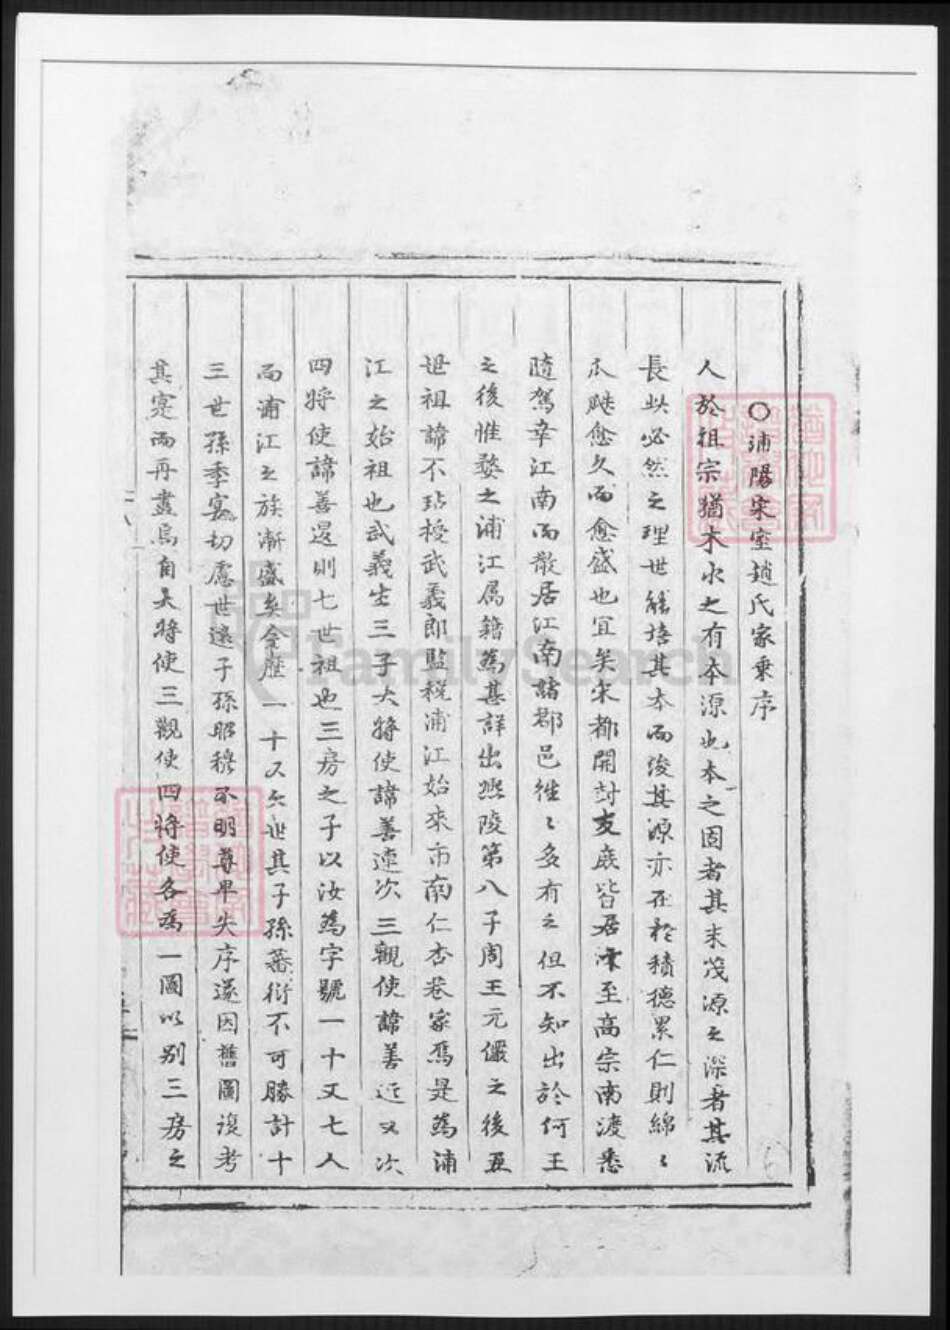 〇浦陽宋室趙氏家乗序
人於祖宗猶木水之有本源也本之固者其末茂源之深者其流
長此必然之理世能培其本而浚其源亦在於積德累仁則綿〻
瓜瓞愈久而愈盛也宜矣宋都開封支庶皆居汴至高宗南渡悉
隨駕幸江南而散居江南諸郡邑徃〻多有之但不知出於何王
之後惟婺之浦江属籍為甚詳出燕陵第八子周王元儼之後五
世祖諱不玷授武義郎監税浦江始來市南仁杏巷家焉是為浦
江之始祖也武義生三子大將使諱善連次三觀使諱善近又次
四將使諱善還則七世祖也三房之子以汝為字號一十又七人
而浦江之族漸盛矣今歷一十又六世其子孫蕃衍不可勝計十
三世孫季寔切慮世遠子孫昭穆不明尊卑失序遂因舊圖復考
其寔而再畫焉自大將使三觀使四將使各為一圖以别三房之
FamilySearch